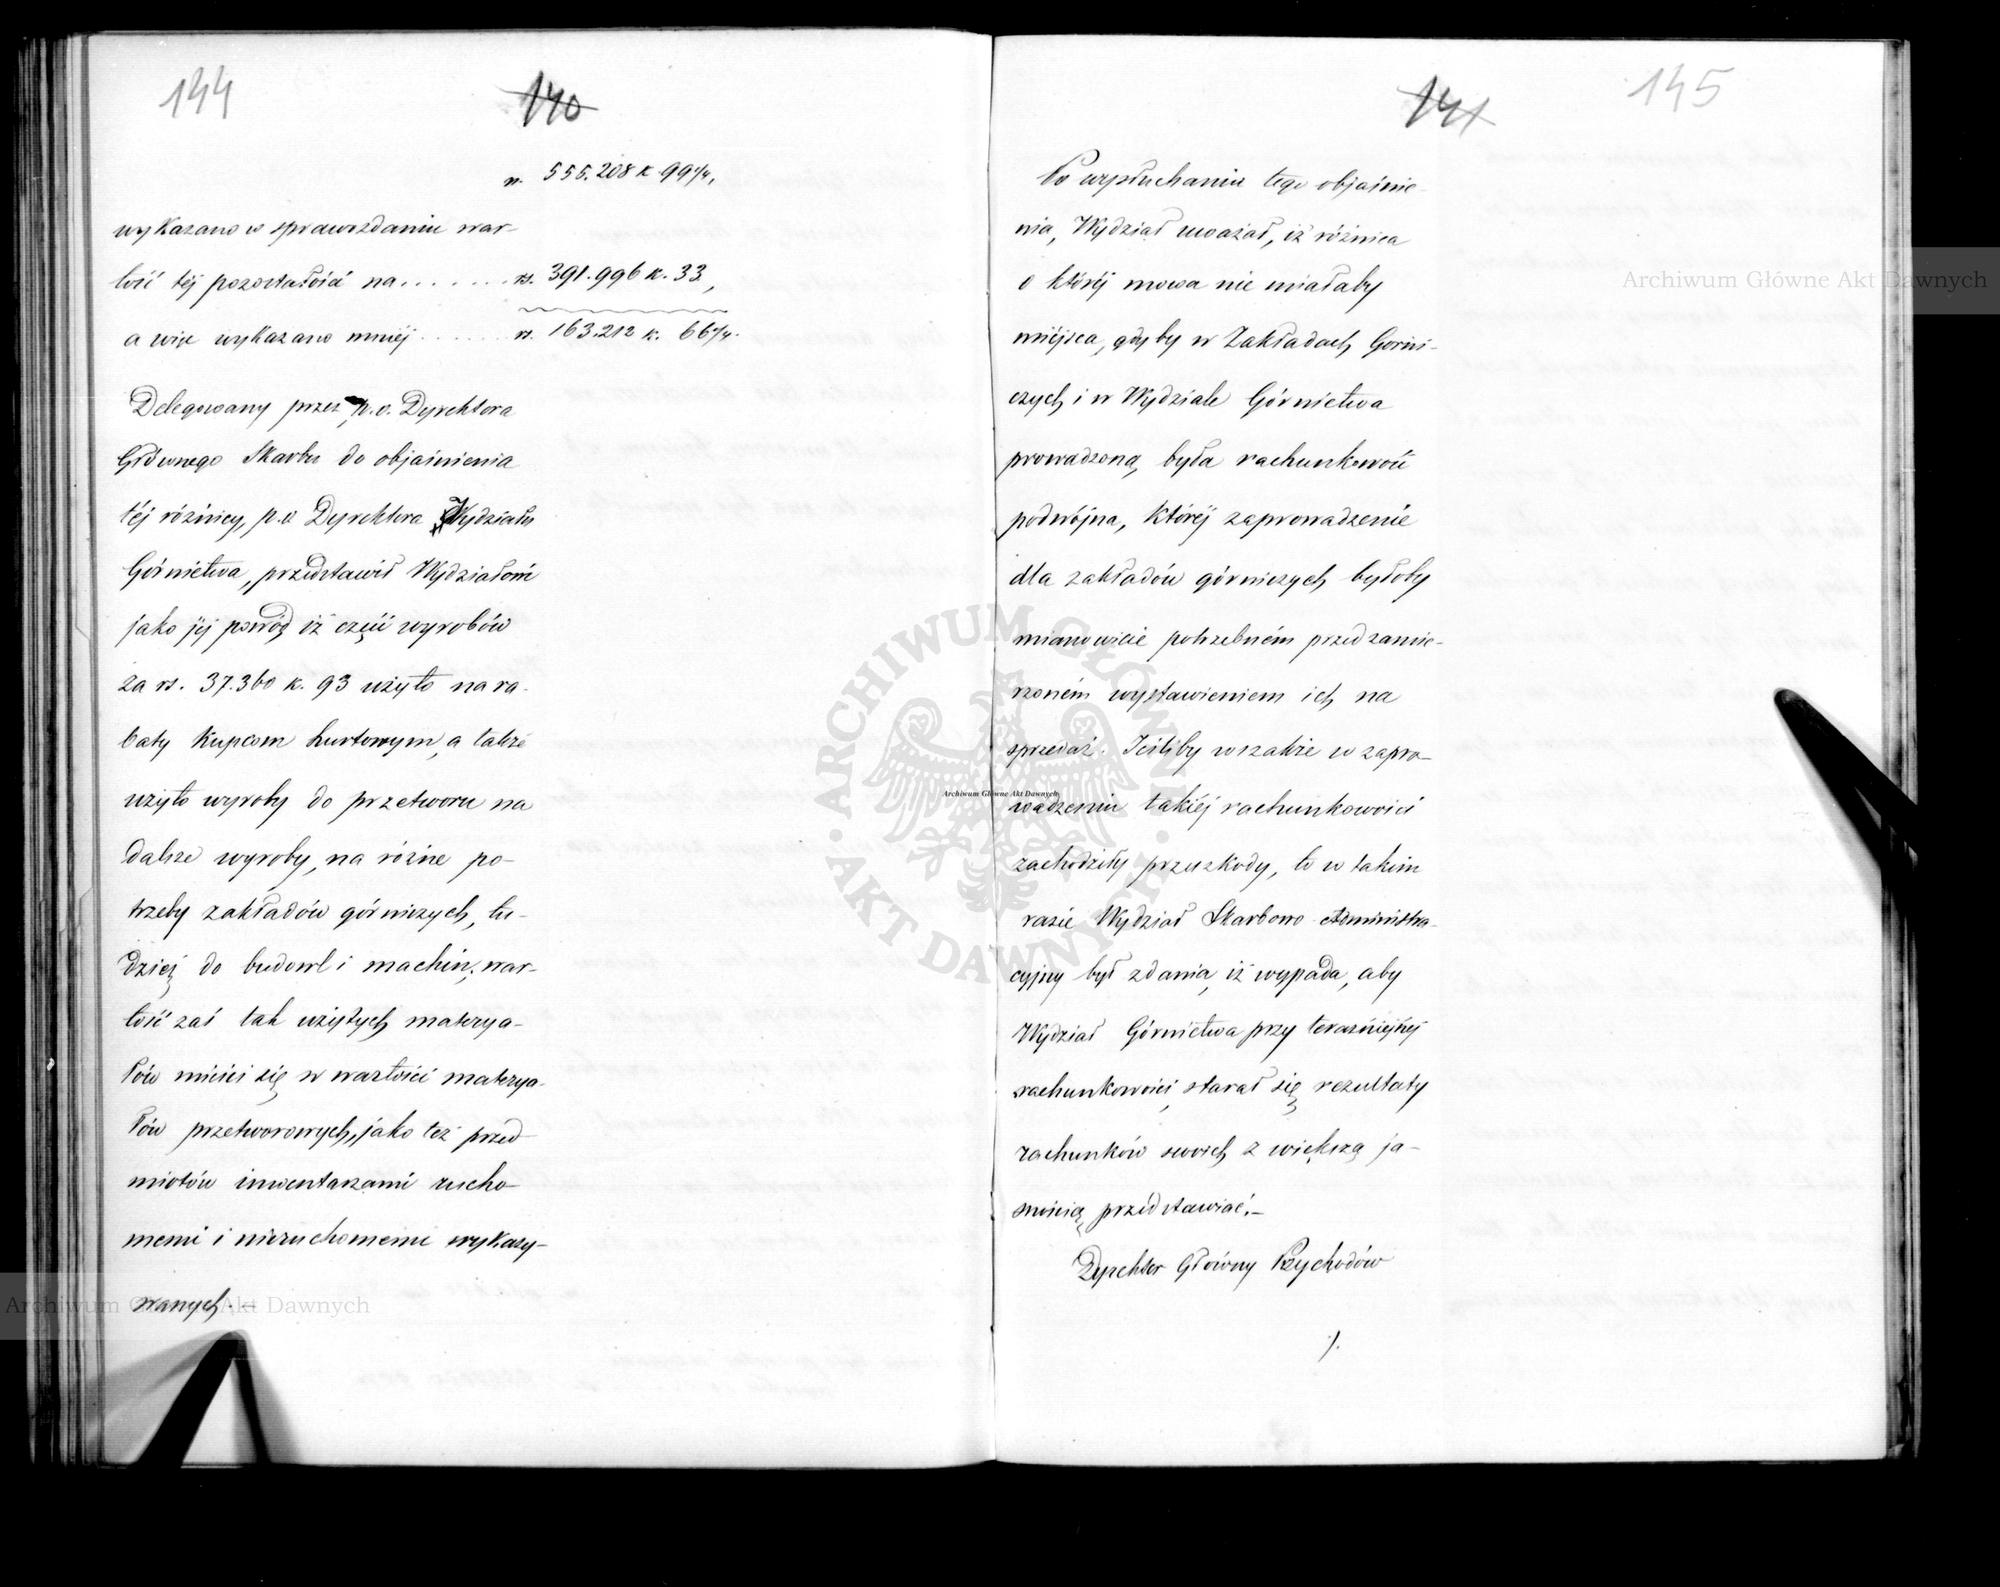 144
140
rs. 555.208 k. 99 1/4,
wykazano w sprawozdaniu war-
tość téj pozostałości na ....... rs. 391.996 k. 33,
a więc wykazano mniéj ....... rs. 163.212 k. 66 1/4.
Delegowany przez p.o. Dyrektora
Głównego Skarbu do objaśnienia
téj różnicy, p.o. Dyrektora Wydziału
Górnictwa, przedstawił Wydziałowi
jako jéj powód iż część wyrobów
za rs. 37.360 k. 93 użyto na ra-
baty kupcom hurtowym, a także
użyto wyroby do przetworu na
dalsze wyroby, na różne po-
trzeby zakładów górniczych, tu-
dzież do budowl i machin, war-
tość zaś tak użytych materya-
łów mieści się w wartości materya-
łów przetworowych, jako też przed-
miotów inwentarzami rucho-
memi i nieruchomemi wykazy-
wanych.—
141
145
Po wysłuchaniu tego objaśnie-
nia, Wydział uważał, iż różnica
o któréj mowa nie miałaby
miéjsca, gdyby w Zakładach Górni-
czych i w Wydziale Górnictwa
prowadzoną była rachunkowość
podwójna, któréj zaprowadzenie
dla zakładów górniczych byłoby
mianowicie potrzebném przed zamie-
rzoném wystawieniem ich na
sprzedaż. Jeśliby wszakże w zapro-
wadzeniu takiéj rachunkowości
zachodziły przeszkody, to w takim
razie Wydział Skarbowo Administra-
cyjny był zdania, iż wypada, aby
Wydział Górnictwa przy teraźniejszéj
rachunkowości, starał się rezultaty
rachunków swoich z większą ja-
snością przedstawiać.—
Dyrektor Główny Przychodów
/.
Archiwum Główne Akt Dawnych
ARCHIWUM GŁÓWNE AKT DAWNYCH
Archiwum Główne Akt Dawnych
Archiwum Główne Akt Dawnych